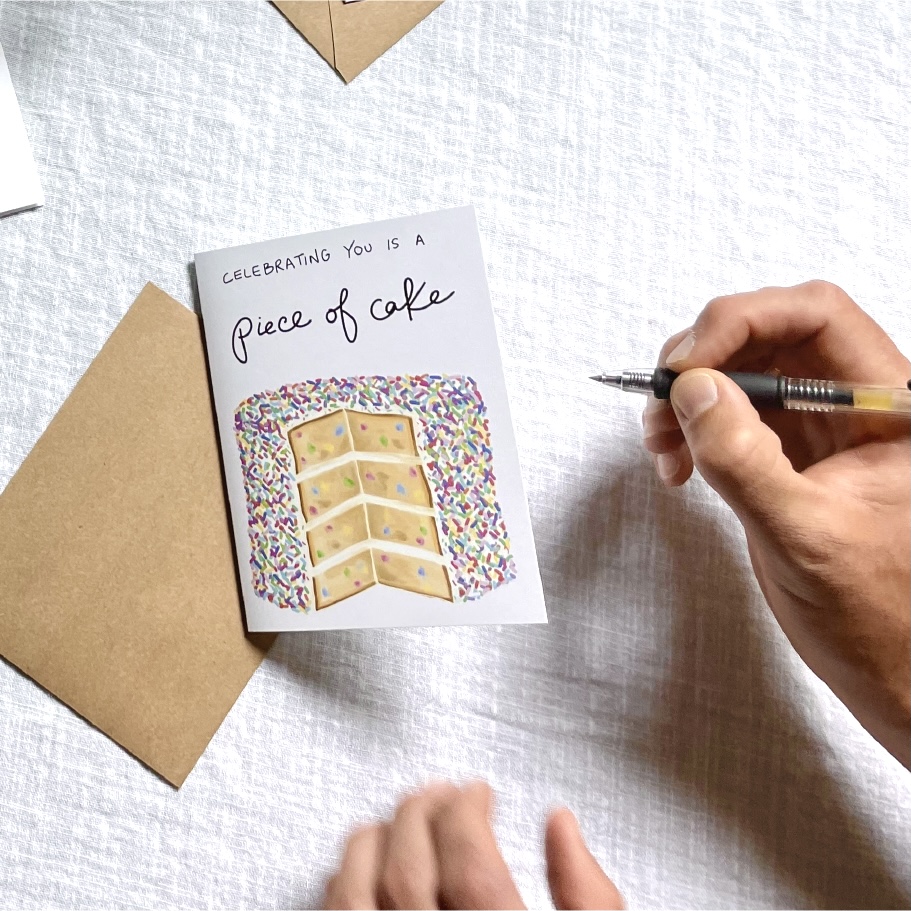 CELEBRATING YOU IS A
piece of cake